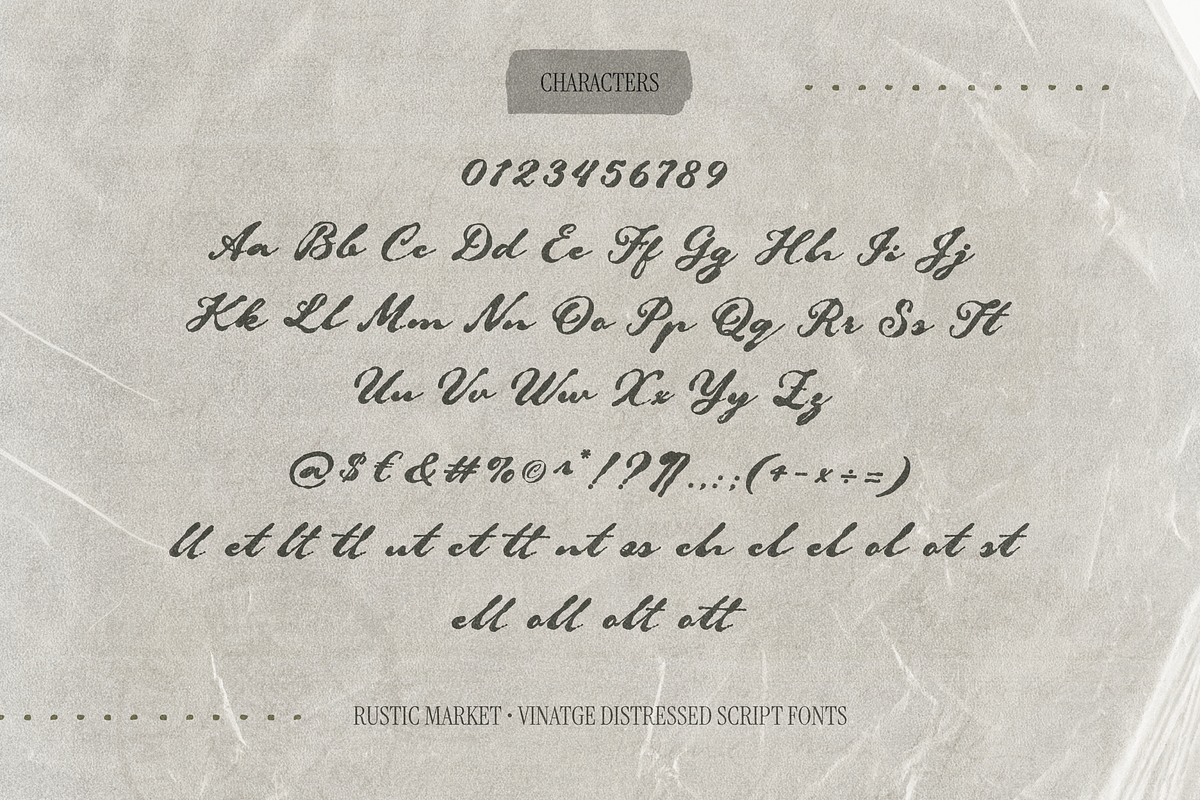 CHARACTERS
0123456789
Aa Bb Cc Dd Ee Ff Gg Hh Ii Jj
Kk Ll Mm Nn Oo Pp Qq Rr Ss Tt
Uu Vv Ww Xx Yy Zz
@$€&#%©^*!?¶.,:;(+-x÷=)
ll et lt tl ut ct tt nt ss ch cl el ol ot st
ell oll olt ott
RUSTIC MARKET • VINATGE DISTRESSED SCRIPT FONTS